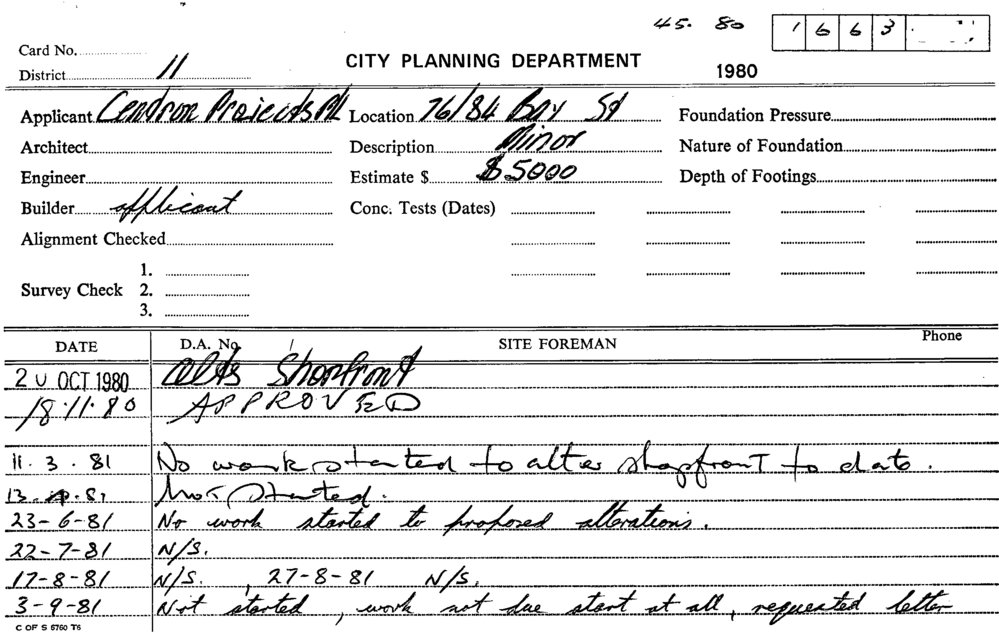 45. 80 1663
Card No.
District 11
CITY PLANNING DEPARTMENT
1980
Applicant Cendron Projects P/L Location 76/84 Bay St Foundation Pressure
Architect Description Minor Nature of Foundation
Engineer Estimate $ $5000 Depth of Footings
Builder applicant Conc. Tests (Dates)
Alignment Checked
1.
Survey Check 2.
3.
DATE D.A. No. SITE FOREMAN Phone
20 OCT 1980 Alts Shopfront
18.11.80 APPROVED
11.3.81 No work started to alter shopfront to date.
13. .81 Not Started.
23-6-81 No work started to proposed alterations.
22-7-81 N/S.
17-8-81 N/S. , 27-8-81 N/S.
3-9-81 Not started, work not due start at all, requested letter
C OF S 6760 T6